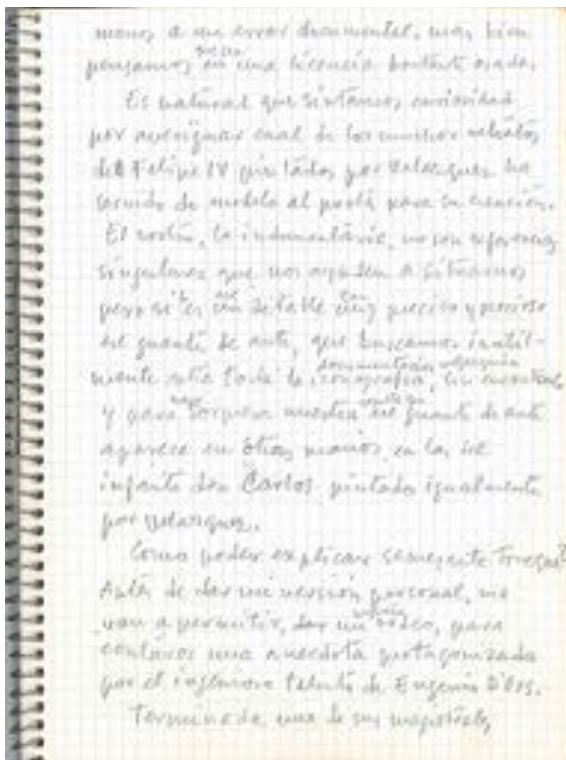 menos a un error documental, mas bien
pensamos en una licencia bastante osada.
Es natural que sintamos curiosidad
por averiguar cual de los muchos retratos
de Felipe IV pintados por Velazquez ha
servido de modelo al poeta para su creación.
El rostro, la indumentaria, no son referencias
singulares que nos ayuden a situarnos
pero si es un detalle muy preciso y precioso
el guante de ante, que buscamos inutil-
mente entre toda la iconografia, sin encontrarlo
y para sorpresa nuestra el guante de ante
aparece en otras manos, en las del
infante don Carlos pintado igualmente
por Velazquez.
Como poder explicar semejante
Antes de dar mi versión personal, me
van a permitir, dar un rodeo, para
contaros una anecdota protagonizada
por el ingenioso talento de Eugenio D'Ors.
Terminada una de sus magistrales